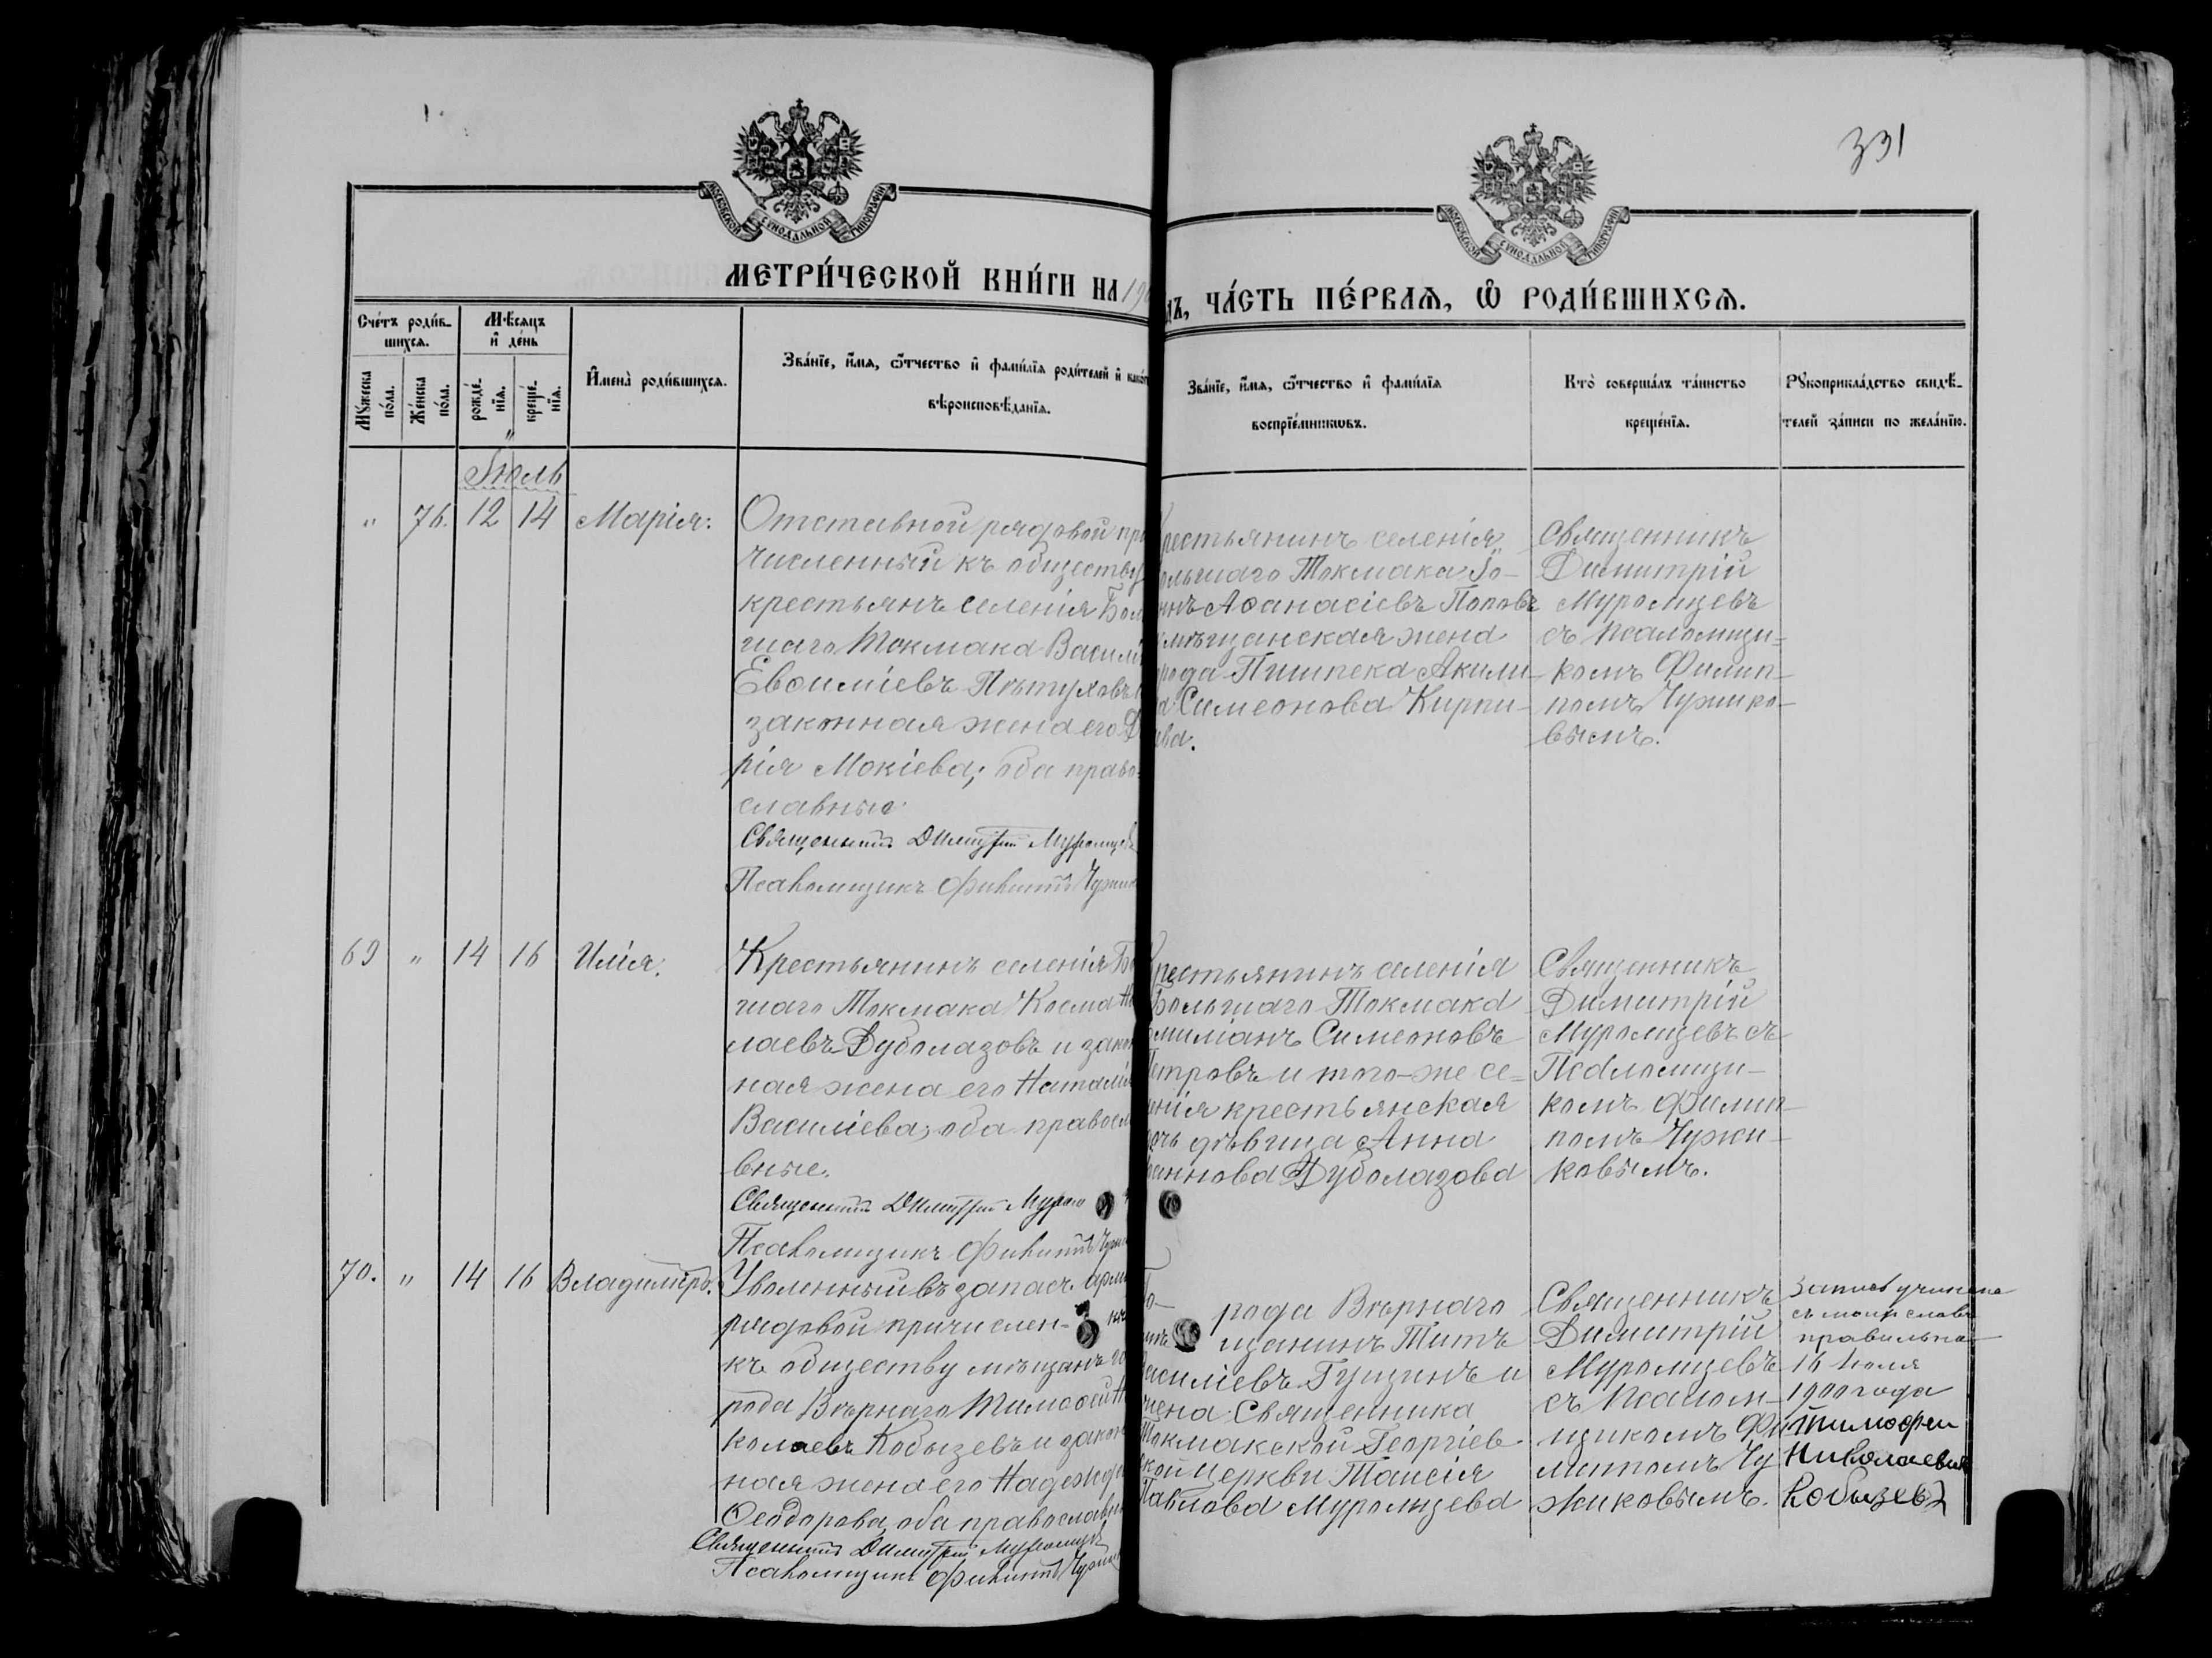 331
МОСКОВСКОЙ СУНОДАЛЬНОЙ ТИПОГРАФІИ
МОСКОВСКОЙ СУНОДАЛЬНОЙ ТИПОГРАФІИ
МЕТРИ́ЧЕСКОЙ КНИ́ГИ НА 190
ДЪ, ЧА́СТЬ ПЕ́РВАѦ, Ѡ҆ РОДИ́ВШИХСѦ.
Сче́тъ роди́в-
шихсѧ.
Мꙋ́жеска по́ла.
Же́нска по́ла.
Мѣ́сѧцъ
и҆ де́нь
рожде́-
нїѧ.
креще́-
нїѧ.
И҆мена̀ роди́вшихсѧ.
Зва́нїе, и҆́мѧ, ѻ҆́тчество и҆ фами́лїѧ роди́телей и҆ како́г
вѣроисповѣ́данїѧ.
Зва́нїе, и҆́мѧ, ѻ҆́тчество и҆ фами́лїѧ
воспрїе́мникѡвъ.
Кто̀ соверша́лъ та́инство
креще́нїѧ.
Рꙋкоприкла́дство свидѣ́-
телей за́писи по жела́нїю.
Іюль
" 76. 12 14 Марія.
Отставной рядовой при
численный къ обществу
крестьянъ селенія Бол
шаго Токмака Василі
Евѳиміевъ Пѣтуховъ
законная жена его Д
рія Мокіева; оба право-
славные
Священникъ Димитрій Муромцев
Псаломщикъ Филиппъ Чужи
рестьянинъ селенія
ольшаго Токмака Іо-
ннъ Аѳанасіевъ Поповъ
мѣщанская жена
рода Пишпека Акили-
а Симеонова Кирпи-
ева.
Священникъ
Димитрій
Муромцевъ
съ псаломщи-
комъ Филип-
помъ Чужико-
вымъ.
69 " 14 16 Илія.
Крестьянинъ селенія Бо
шаго Токмака Косма Ни
лаевъ Дуболазовъ и закон
ная жена его Наталія
Василіева, оба правосл
вные.
Священникъ Димитрій Муром
Псаломщикъ Филиппъ Чужи
рестьянинъ селенія
Большаго Токмака
миліанъ Симеоновъ
Петровъ и того-же се-
енія крестьянская
очь дѣвица Анна
аннова Дуболазова
Священникъ
Димитрій
Муромцевъ съ
Псаломщи-
комъ Филип-
помъ Чужи-
ковымъ.
70. " 14 16 Владиміръ.
Уволенный въ запасъ арми
рядовой причислен-
къ обществу мѣщанъ го
рода Вѣрнаго Тимоѳей Н
колаевъ Кобызевъ и закон
ная жена его Надежда
Ѳеодорова, оба православн
Священникъ Димитрій Муромцев
Псаломщикъ Филиппъ Чужи
Го-
рода Вѣрнаго
щанинъ Титъ
асиліевъ Гущинъ и
жена Священника
Токмакской Георгіев-
ской церкви Таисія
Павлова Муромцева
Священникъ
Димитрій
Муромцевъ
съ псалом-
щикомъ Фи
липпомъ Чу
жиковымъ.
Запись учинена
съ моихъ словъ
правильно
16 Іюля
1900 года
Тимофеи
Николаевич
Кобызевъ